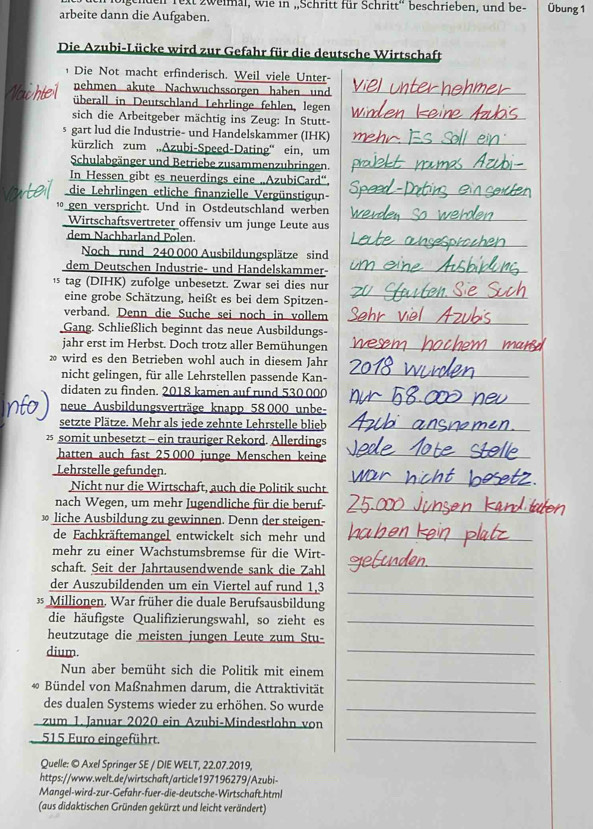 Text zweimal, wie in „Schritt für Schritt“ beschrieben, und be-
arbeite dann die Aufgaben.
Übung 1
Die Azubi-Lücke wird zur Gefahr für die deutsche Wirtschaft
1 Die Not macht erfinderisch. Weil viele Unter-
nehmen akute Nachwuchssorgen haben und
überall in Deutschland Lehrlinge fehlen, legen
sich die Arbeitgeber mächtig ins Zeug: In Stutt-
5 gart lud die Industrie- und Handelskammer (IHK)
kürzlich zum „Azubi-Speed-Dating“ ein, um
Schulabgänger und Betriebe zusammenzubringen.
In Hessen gibt es neuerdings eine „AzubiCard“,
die Lehrlingen etliche finanzielle Vergünstigun-
10 gen verspricht. Und in Ostdeutschland werben
Wirtschaftsvertreter offensiv um junge Leute aus
dem Nachbarland Polen.
Noch rund 240 000 Ausbildungsplätze sind
dem Deutschen Industrie- und Handelskammer-
15 tag (DIHK) zufolge unbesetzt. Zwar sei dies nur
eine grobe Schätzung, heißt es bei dem Spitzen-
verband. Denn die Suche sei noch in vollem
Gang. Schließlich beginnt das neue Ausbildungs-
jahr erst im Herbst. Doch trotz aller Bemühungen
20 wird es den Betrieben wohl auch in diesem Jahr
nicht gelingen, für alle Lehrstellen passende Kan-
didaten zu finden. 2018 kamen auf rund 530 000
neue Ausbildungsverträge knapp 58 000 unbe-
setzte Plätze. Mehr als jede zehnte Lehrstelle blieb
25 somit unbesetzt – ein trauriger Rekord. Allerdings
hatten auch fast 25 000 junge Menschen keine
Lehrstelle gefunden.
Nicht nur die Wirtschaft, auch die Politik sucht
nach Wegen, um mehr Jugendliche für die beruf-
30 liche Ausbildung zu gewinnen. Denn der steigen-
de Fachkräftemangel entwickelt sich mehr und
mehr zu einer Wachstumsbremse für die Wirt-
schaft. Seit der Jahrtausendwende sank die Zahl
der Auszubildenden um ein Viertel auf rund 1,3
35 Millionen. War früher die duale Berufsausbildung
die häufigste Qualifizierungswahl, so zieht es
heutzutage die meisten jungen Leute zum Stu-
dium.
Nun aber bemüht sich die Politik mit einem
40 Bündel von Maßnahmen darum, die Attraktivität
des dualen Systems wieder zu erhöhen. So wurde
zum 1. Januar 2020 ein Azubi-Mindestlohn von
515 Euro eingeführt.
Quelle: © Axel Springer SE / DIE WELT, 22.07.2019,
https://www.welt.de/wirtschaft/article197196279/Azubi-
Mangel-wird-zur-Gefahr-fuer-die-deutsche-Wirtschaft.html
(aus didaktischen Gründen gekürzt und leicht verändert)
Nachteil
Vorteil
Info)
viel unternehmer
winden keine Azubis
mehr. Es soll ein
projekt names Azubi-
Speed-Dating
werden so werden
Leute angesprochen
um eine Ausbildung
zu starten. Sie Such
Sehr viel Azubis
wesem hochem
2018 wurden
nur 58.000 neu
Azubi angnomen.
Jede 10te stelle
war nicht besetz.
25.000 jungen kanditaten
haben kein platz
gefunden.